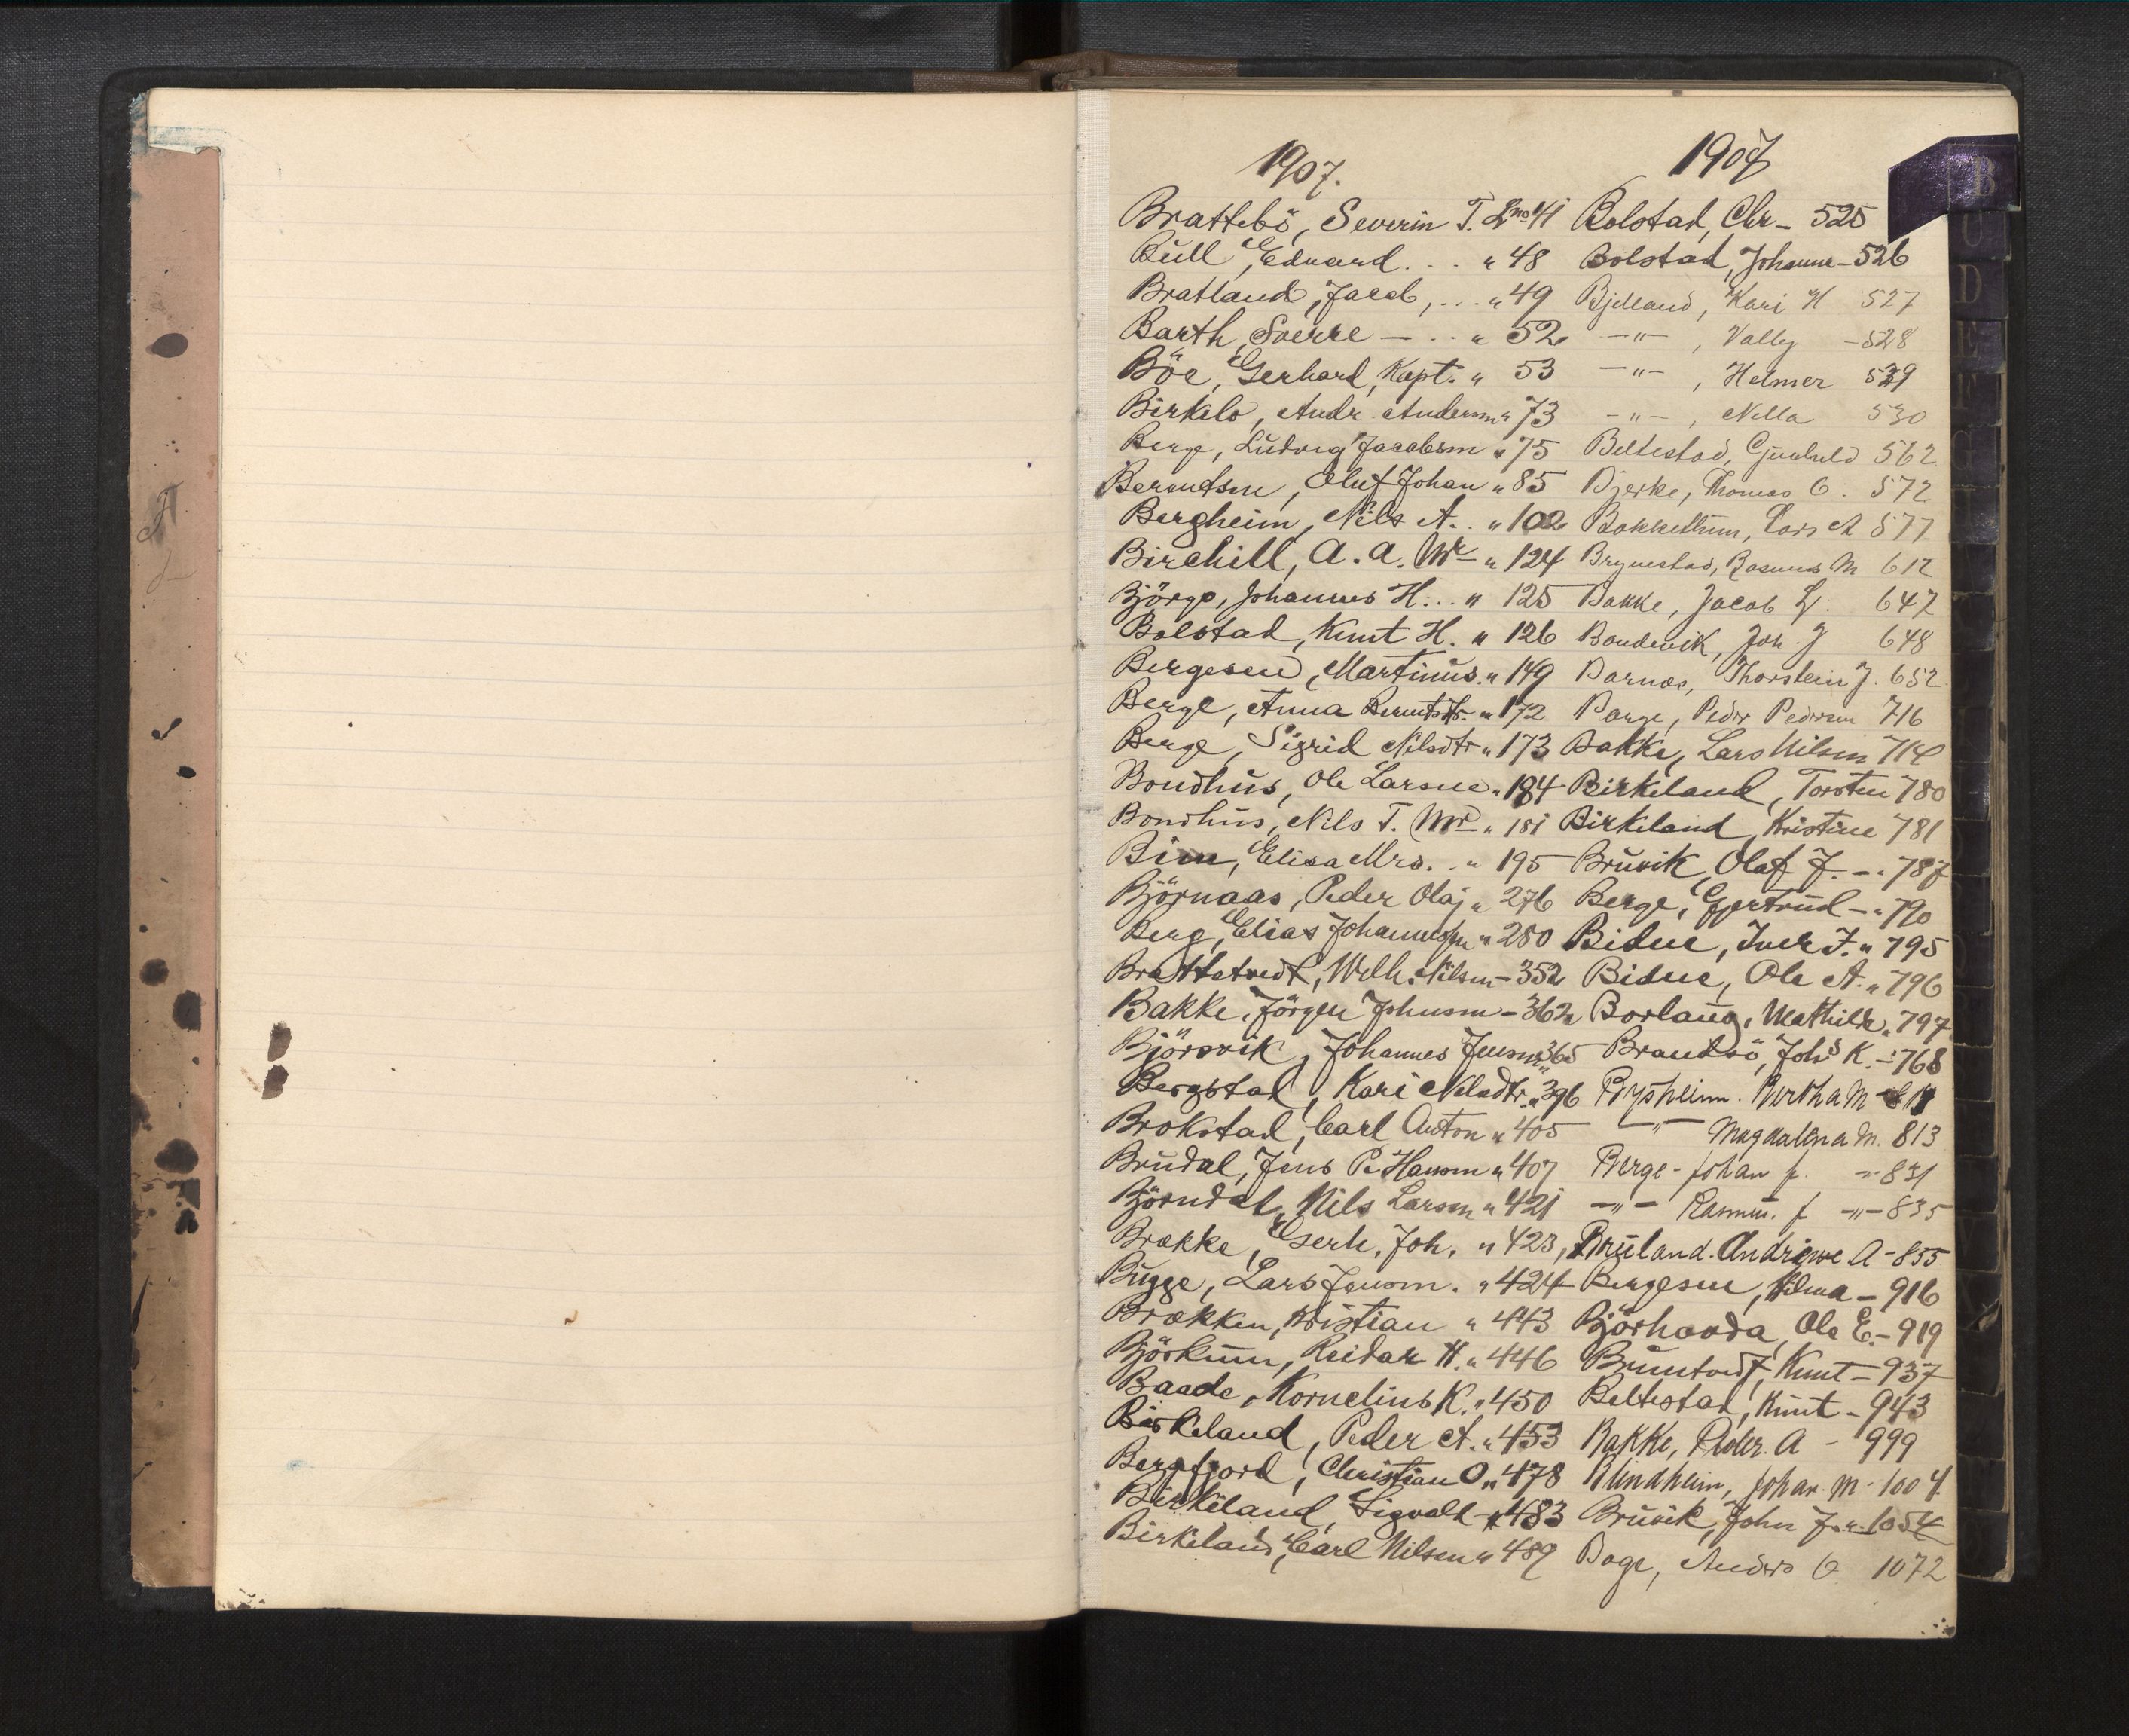 1907.
Brattebö, Severin T. Lno 41
Büll, Edvard. . . " 48
Bratland, Jacob, . . . " 49
Barth, Sverre — . . " 52
Böe, Gerhard, Kapt. " 53
Birkelo, Andr. Andersen " 73
Berge, Ludvig Jacobsen " 75
Berentsen, Oluf Johan " 85
Bergheim, Nils A. . " 102
Birchill, A. A. Mr " 124
Björge, Johannes H. . . " 125
Bolstad, Knut H. " 126
Bergesen, Martinus. " 149
Berge, Anna " 172
Berge, Sigrid Nilsdtr " 173
Bondhus, Ole Larsen "
Bondhus, Nils T. Mr " 181
Elisa Mrs. . " 195
Björnaas, Peder Olaj " 276
Berg, Elias Johannessen " 280
Brattetvedt, Wilh. Nilsen - 352
Bakke, Jörgen Johnsen - 362
Björsvik, Johannes Jensen " 365
Bergstad, Kari Nilsdtr. " 396
Brokstad, Carl Anton " 405
Brudal, Jens P. Hansen " 407
Björndal, Nils Larsen " 421
Brække, Gerh. Joh. " 423,
Bugge, Lars Jensen. " 424
Brækken, Kristian " 443
Björkum, Reidar H. " 446
Baade, Kornelius K. " 450
Birkeland, Peder A. " 453
Bergfjord, Christian O. " 478
Birkeland, Sigvald - " 483
Birkeland, Carl Nilsen " 489
1907
Bolstad, Chr - 525
Bolstad, Johanne - 526
Bjelland, Kari H 527
— " — , Valley - 528
— " — , Helmer 529
— " — , Nella 530
Beltestad, Gunhild 562
Bjerke, Thomas C. 572
Bakkethun, Lars A 577
Brynestad, Rasmus M 612
Bakke, Jacob L. 647
Bondevik, Joh. J 648
Barnæs, Thorstein J. 652
Borge, Peder Pedersen 716
Bakke, Lars Nilsen
Birkeland, Torsten 780
Birkeland, Kristine 781
Bruvik, Olaf J. - " 787
Berge, Gjertrud - " 790
Bidne, Iver J. " 795
Bidne, Ole A. " 796
Borlaug, Mathilde " 797
Brandsö, Johs K. - " 768
Bertha M
— " — Magdalena M. 813
Berge - Johan J. - " 831
— " — Rasmus. J - " - 835
Bruland. A - 855
Bergesen, Hilma - 916
Björhovda, Ole E. - 919
Bruntvedt, Knut - 937
Beltestad, Knut - 943
Bakke, Peder. A - 999
Blindheim, Johan M - 1004
Bruvik, John J. " 1054
Boge, Anders O 1072
B
C
D
E
F
G